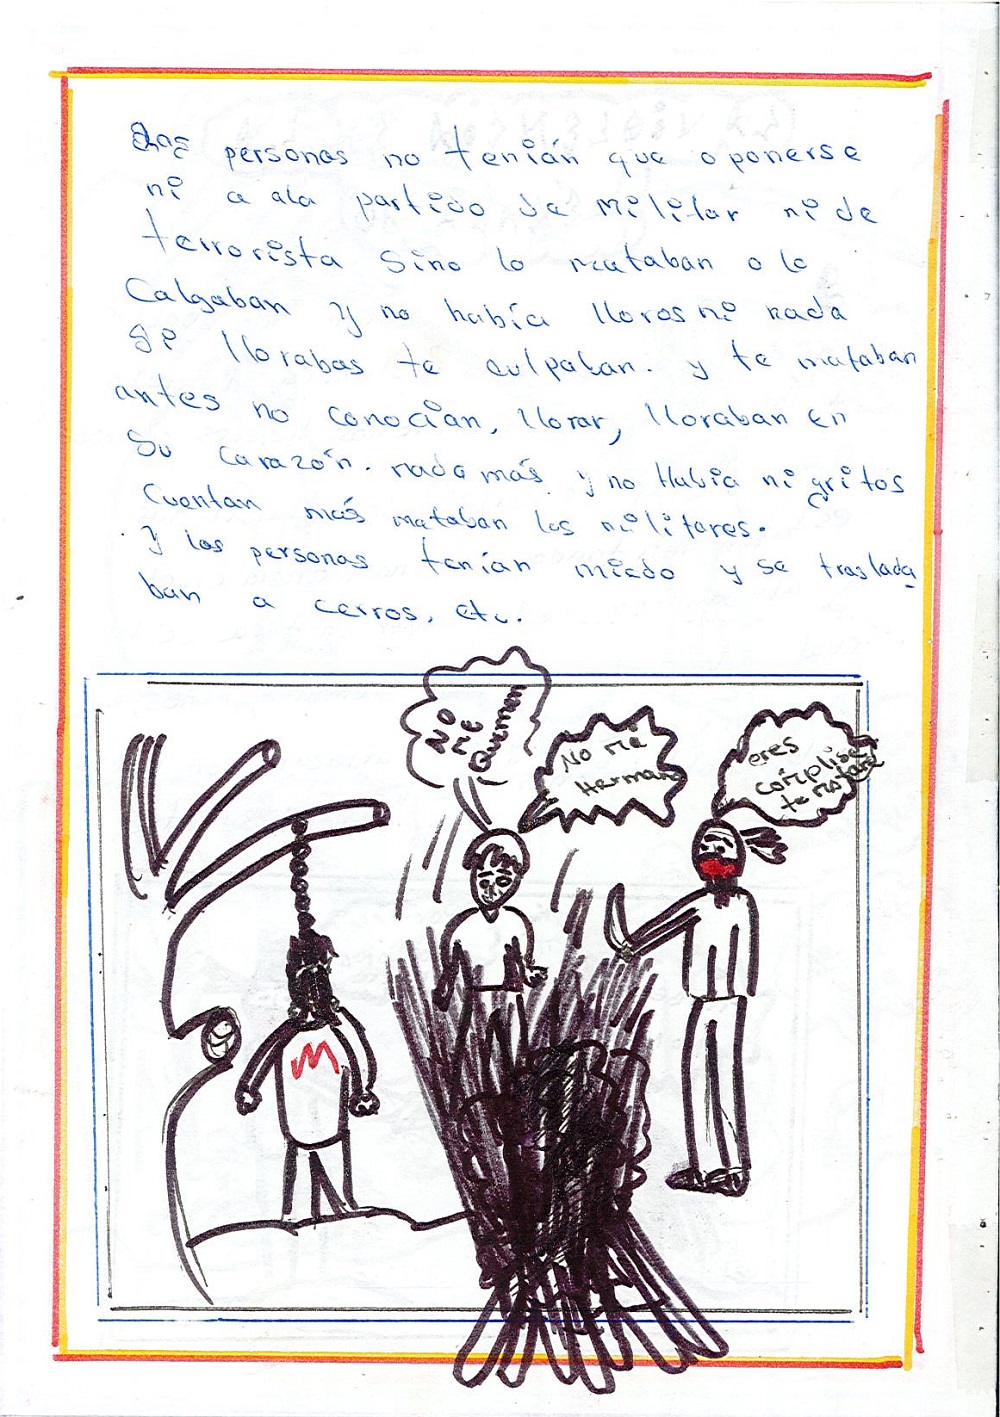 Las personas no tenián que oponerse
ni a ala partido de militar ni de
terrorista sino lo mataban o lo
Calgaban y no había lloros ni nada
si llorabas te culpaban. y te mataban
antes no conocían, llorar, lloraban en
su carazón. nada más y no Había ni gritos
Cuentan más mataban los militares.
Y las personas tenían miedo y se traslada
ban a cerros, etc.
NO
ME
Quemen
No me
Herman
eres
complise
te matare
M